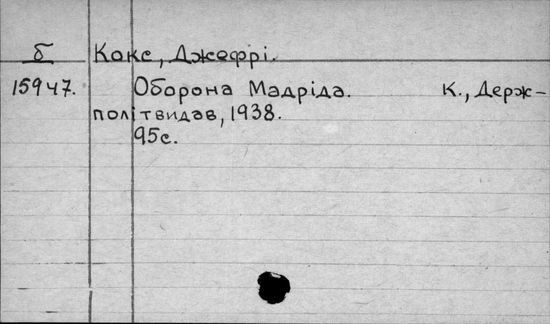 б Кокс, Джефрі.
15947. Оборона Мадріда. К., Держ-
політвидав, 1938.
95с.